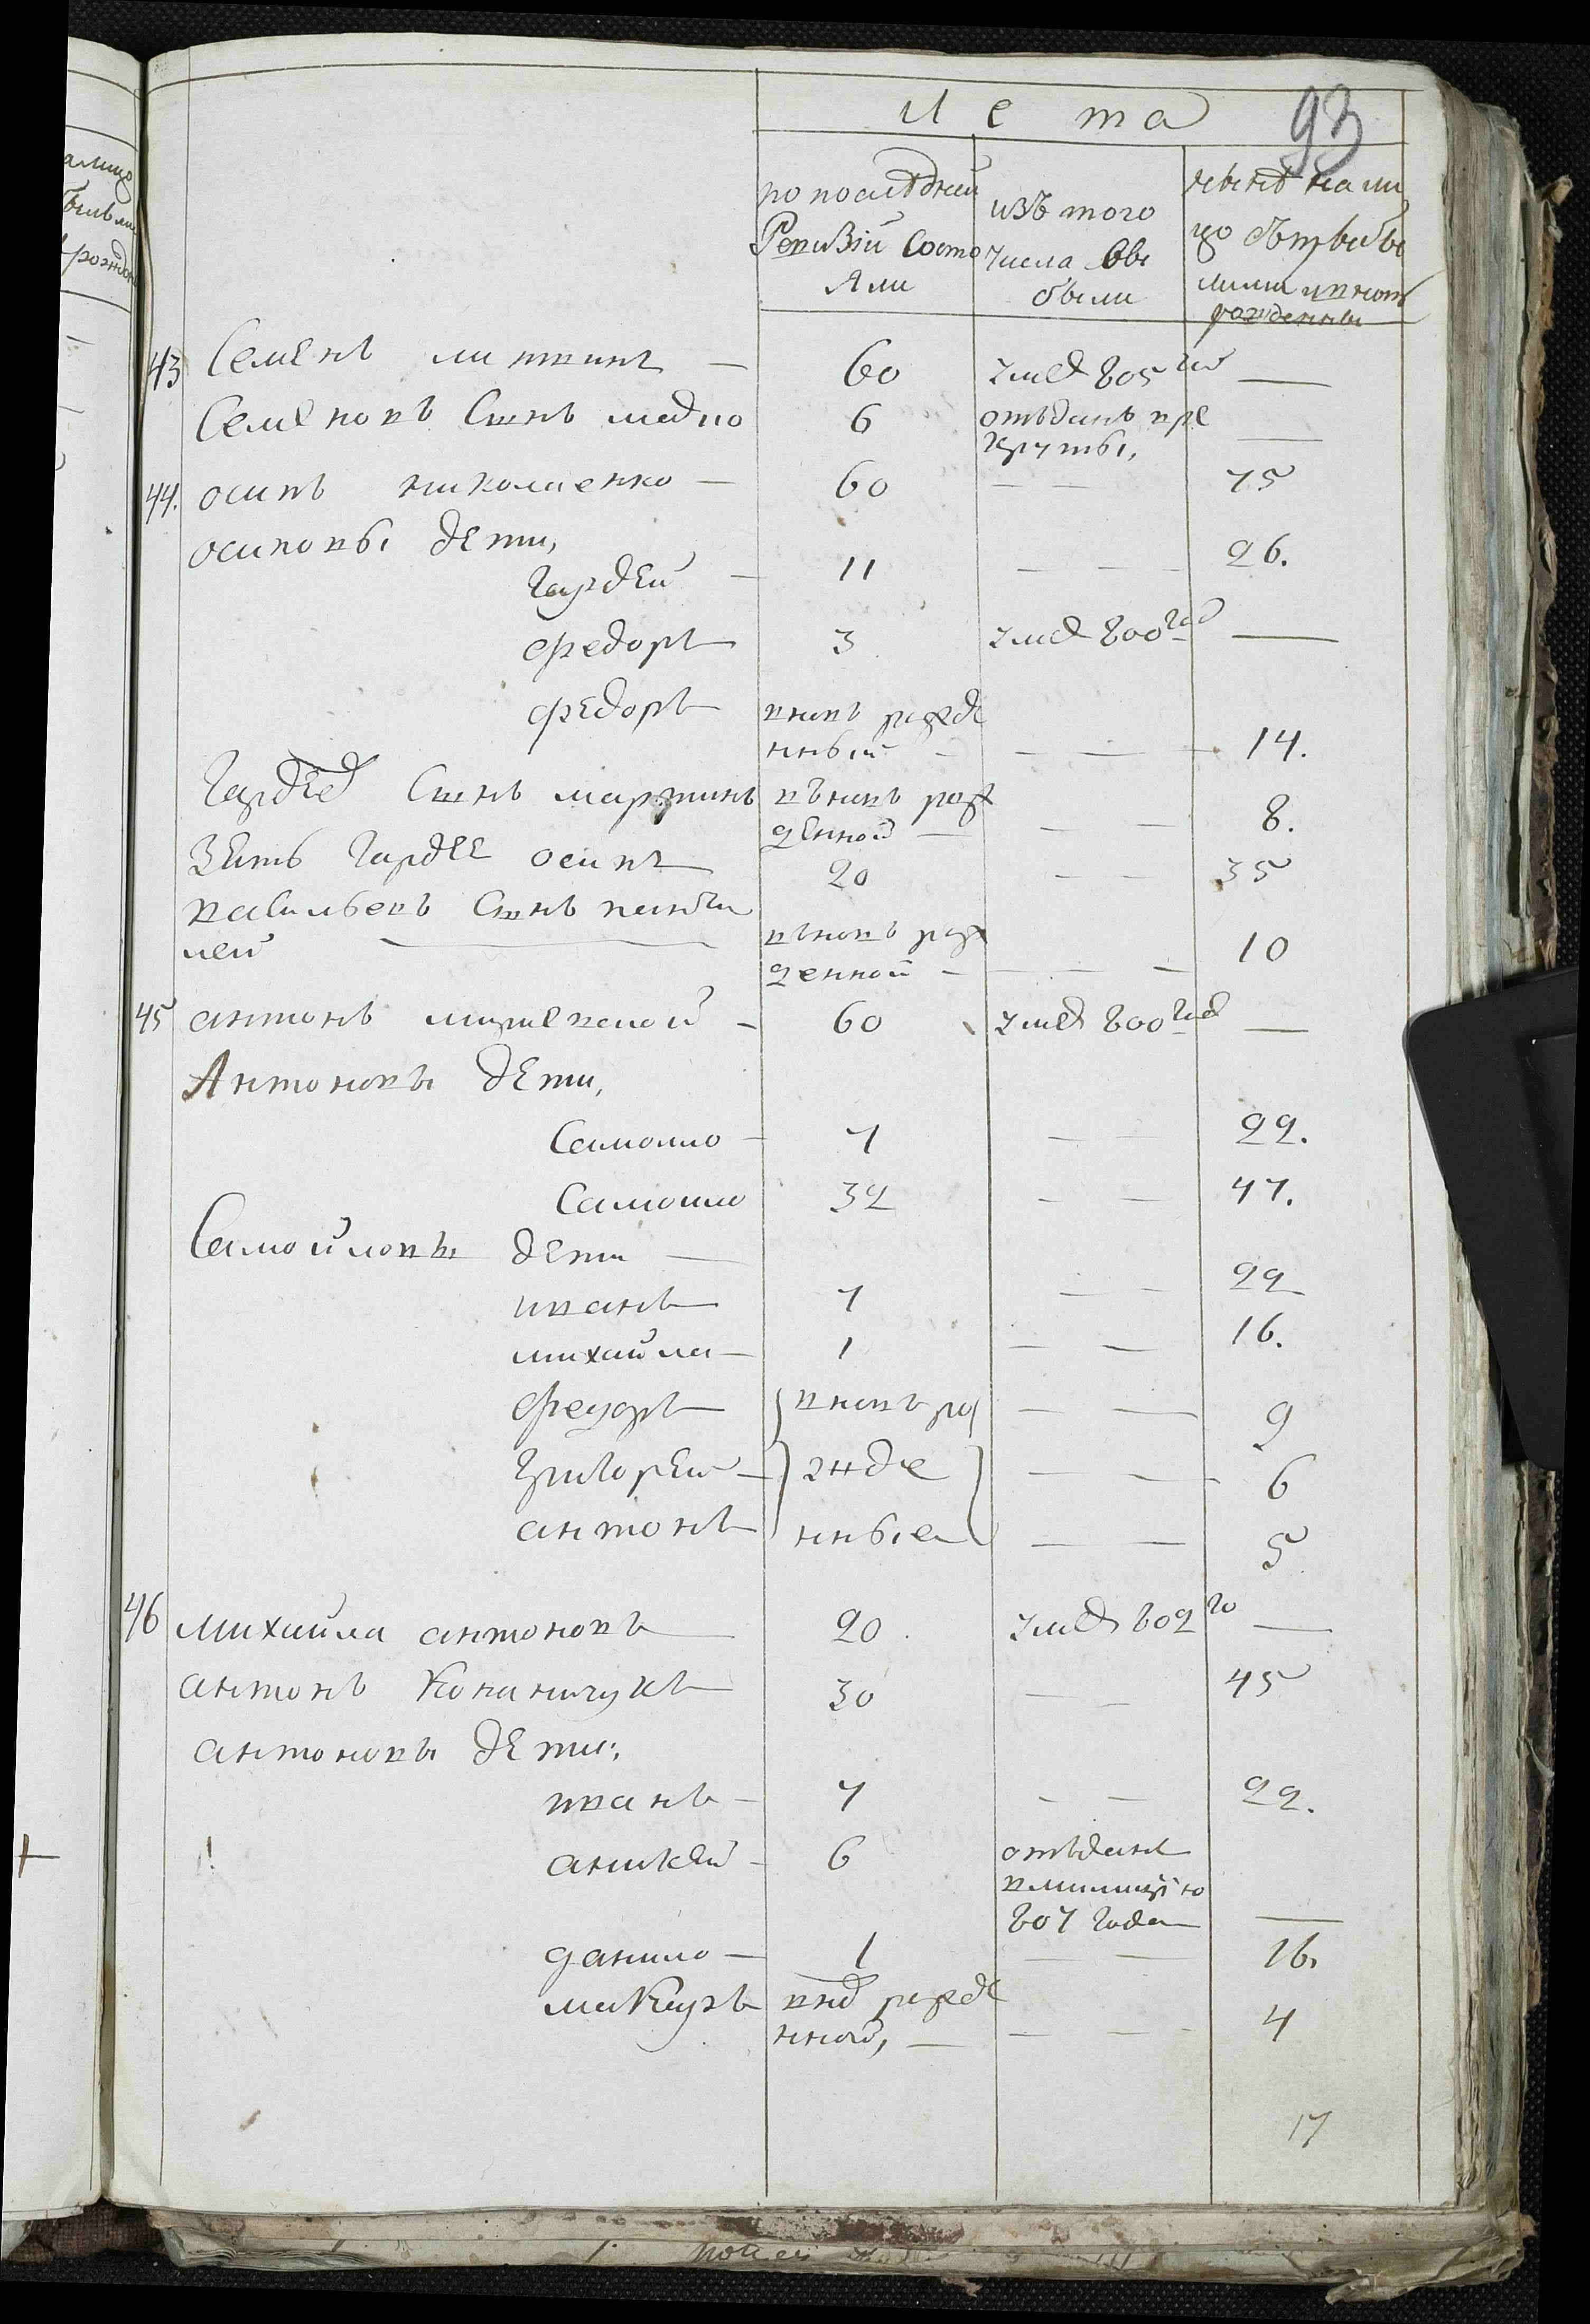 93
лета
по последней Ревизiи Состояли
изъ того числа выбыли
ныне на лицо съ прибылыми и вновь рожденны
43 Семенъ — 60 умеръ 805 год —
Семеновъ Сынъ 6 отъданъ в рекруты, —
44. осипъ николаенко — 60 — — 75
осиповы дети,
гардей — 11 — — 26.
федоръ 3 умер 800 год —
федоръ вновь рожденный — — — 14.
Гардея Сынъ мартинъ въновь рожденной — — — 8.
Зять Гардее осипъ 20 — — 35
васильевъ Сынъ
лей — вновь рожденной — — — 10
45 антонъ — 60 умер 800 год —
Антоновы дети,
Самоило — 7 — — 22.
Самоило 32 — — 47.
Самойловы дети —
иванъ 7 — — 22
михайла — 1 — — 16.
феодоръ вновь ро — — 9
григорей — жде — — 6
антонъ нные — — 5
46 михайла антоновъ 20 умеръ 802 го —
антонъ Конаничукъ 30 — — 45
антоновы дети,
иванъ — 7 — — 22.
аникей — 6 отъданъ в милицiю 807 года —
данило — 1 — — 16.
вно рожденной, — — — 4
17